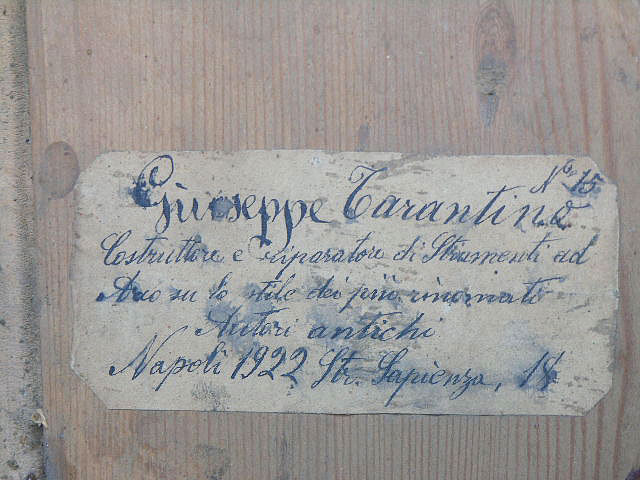 Nº 15
Giuseppe Tarantino
Costruttore e riparatore di Strumenti ad
Arco su lo stile dei più rinomati
Autori antichi
Napoli 1922 Str. Sapienza, 18